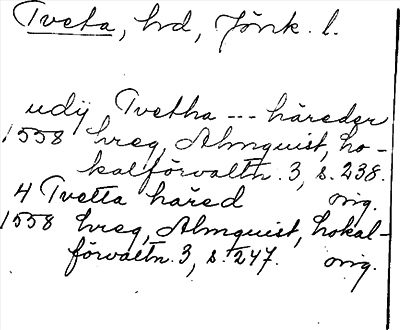 Tveta, hd, Jönk. l.
udij Tvetha --- häreder
1558 hreg, Almquist, Lo-
kalförvaltn. 3, s. 238.
4 Tvetta häred orig.
1558 hreg, Almquist, Lokal-
förvaltn. 3, s. 247. orig.